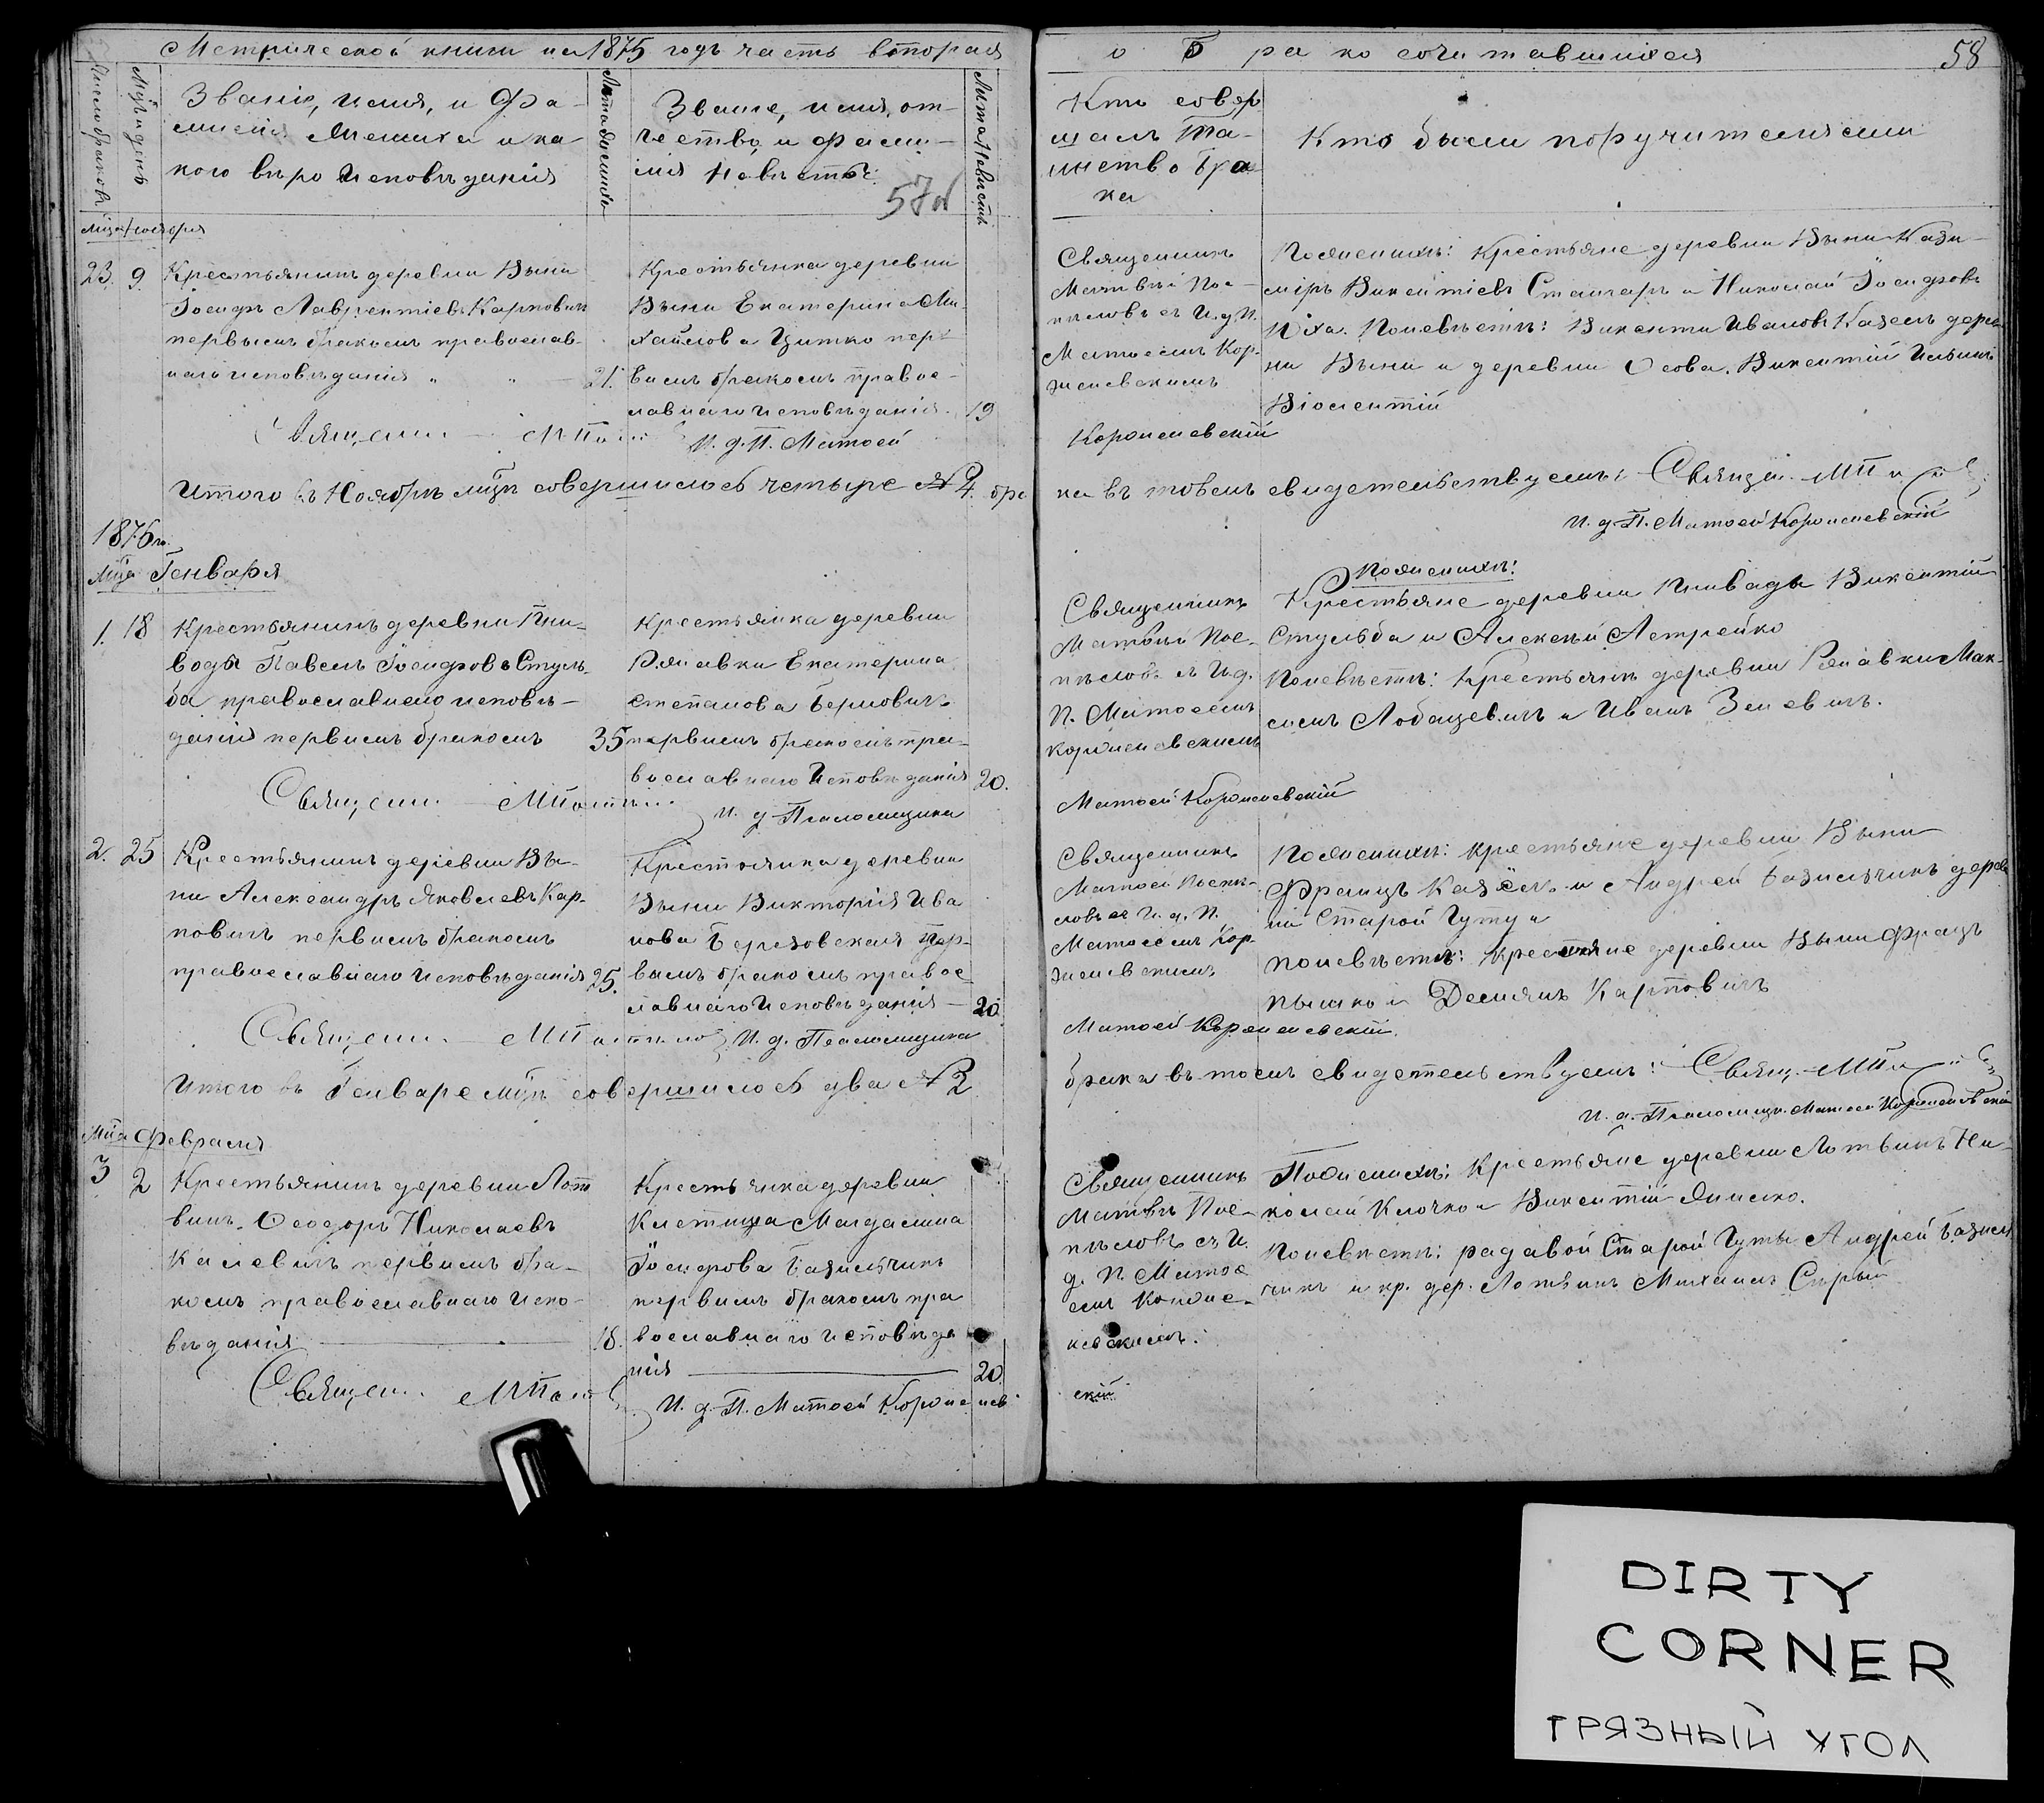 Метрической книги на 1875 годъ часть вторая
о бракосочитавшихся
58
Число браковъ
Мцъ и день
Званіе, имя, и Фа-
милія Жениха и ка-
кого вѣро Исповѣданія
Лѣта Жениха
Званіе, имя, от-
чество, и фами-
лія Невѣсты
57об
Лѣта Невѣсты
Кто совер
шалъ Та-
инство бра
ка
Кто были поручителями
Мца Ноября
23. 9.
Крестьянинъ деревни Выни
Іосифъ Лаврентіевъ Карповичъ
первымъ бракомъ православ-
наго исповѣданія
21.
Крестьянка деревни
Выни Екатерина Ми-
хайлова Цитко пер-
вымъ бракомъ правос-
лавнаго Исповѣданія
19
И. д. П. Матѳей
Священникъ
Матвѣй Пос-
пѣловъ съ И. д. П.
Матѳеемъ Кор-
жаневскимъ
По женихѣ: Крестьяне деревни Выни Кази-
міръ Викентіевъ и Николай Іосифовъ
По невѣстѣ: Викентій Ивановъ дерев
ни Выни и деревни Осова. Викентій
Итого въ Ноябрѣ мцѣ совершилось четыре № 4. бра
ка въ томъ свидетельствуемъ: Священ.
И. д. П. Матѳей
1876 го.
Мца Генваря
1. 18
Крестьянинъ деревни Пни-
воды Павелъ Іосифовъ Стуль-
ба православнаго исповѣ-
данія первымъ бракомъ
35
Крестьянка деревни
Екатерина
Степанова Берновичъ
первымъ бракомъ пра-
вославнаго Исповѣданія
20.
И. д. Псаломщика
Священникъ
Матвѣй Пос-
пѣловъ съ И. д.
П. Матѳеемъ
По женихѣ:
Крестьяне деревни Пниводы Викентій
Стульба и Алексѣй Астрейко
По невѣстѣ: Крестьяне деревни Мак-
симъ Лобацевичъ и Иванъ Зеневичъ.
Священ.
Матѳей
2. 25
Крестьянинъ деревни Вы-
ни Александръ Яковлевъ Кар-
повичъ первымъ бракомъ
православнаго Исповѣданія
25.
Крестьянка деревни
Выни Викторія Ива
нова Березовская пер-
вымъ бракомъ правос
лавнаго Исповѣданія
20.
И. д. Псаломщика
Священникъ
Матѳей Поспѣ-
ловъ съ И. д. П.
Матѳеемъ Кор-
жаневскимъ
По женихѣ: крестьяне деревни Выни
Францъ и Андрей Базильчикъ дерев
ни Старой Гуты
По невѣстѣ: крестьяне деревни Выни Францъ
и Демьянъ Карповичъ
Священ.
Матѳей
Итого въ Генваре мцѣ совершилось два № 2
брака въ томъ свидетельствуемъ: Священ.
И. д. Псаломщи. Матѳей
Мца Февраля
3 2
Крестьянинъ деревни Лот
винъ Ѳеодоръ Николаевъ
Калевичъ первымъ бра-
комъ православнаго Испо-
вѣданія
18.
Крестьянка деревни
Клетища Магдалина
Іосифова Базильчикъ
первымъ бракомъ пра
вославнаго Исповѣда
нія
20
Священ.
И. д. П. Матѳей
Священникъ
Матвѣй Пос-
пѣловъ съ И.
д. П. Матѳе
емъ
По женихѣ: Крестьяне деревни Лотвинъ Ни-
колай Клочко и Викентій
По невѣстѣ: радавой Старой Гуты Андрей Базиль
чикъ и кр. дер. Лотвинъ Михаилъ Сырый
DIRTY
CORNER
ГРЯЗНЫЙ УГОЛ